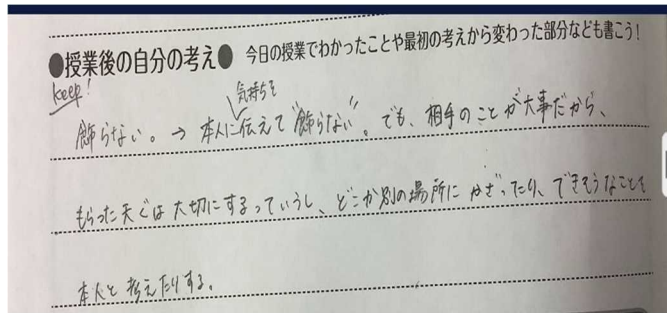 ●授業後の自分の考え● 今日の授業でわかったことや最初の考えから変わった部分なども書こう!
keep!
気持ちを
飾らない。→ 本人に伝えて"飾らない"。でも、相手のことが大事だから、
もらった天ぐは大切にするっていうし、どこか別の場所にかざったり、できそうなことを
本人と考えたりする。